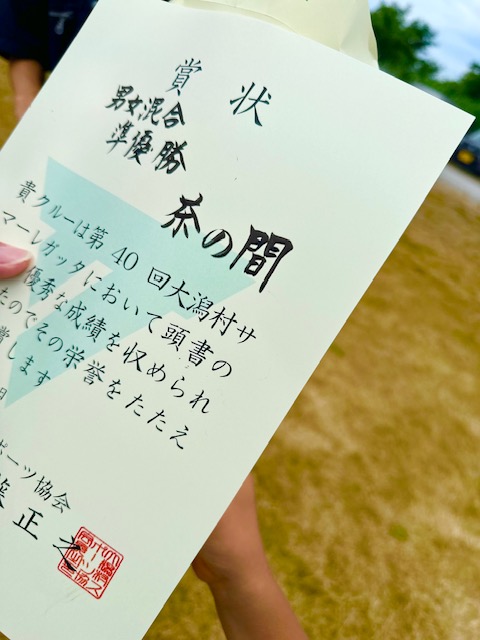 賞状
男女混合
準優勝
茶の間
貴クルーは第40回大潟村サ
マーレガッタにおいて頭書の
優秀な成績を収められ
たのでその栄誉をたたえ
賞します
日
ポーツ協会
正之